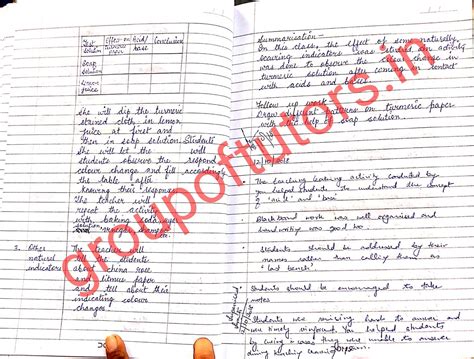 Test solution | Effect on turmeric paper | Acid/ base | Conclusion
Soap solution
juice
she will dip the turmeric
strained cloth in lemon
juice at first and
then in soap solution. Students
she will let the will
students observe the respond
colour change and fill accordingly
the table after
knowing their response.
The teacher will
repeat the activity
with baking soda,
solution, vinegar, shampoo
3. Other natural indicators
The teacher will
tell the students
about china rose
and litmus paper
and tell about their
indicating colour
changes.
Summarisation -
In this class, the effect of some naturally
occuring indicators was studied. An activity
was done to observe the colour change in
turmeric solution after coming in contact
with acids and bases.
Follow up work -
Draw different patterns on turmeric paper
with the help of soap solution.
12/10/2018
The teaching learning activity conducted by
you helped students to understand the concept
of "acid" and "base"
Blackboard work was well organised and
handwriting was good too.
Students should be addressed by their
names rather than calling them as
"last bench".
Students should be encouraged to take
notes
Students were striving hard to answer and
were timely reinforced. You helped students
by giving cues they were unable to answer
during teaching learning
groupoftutors.in